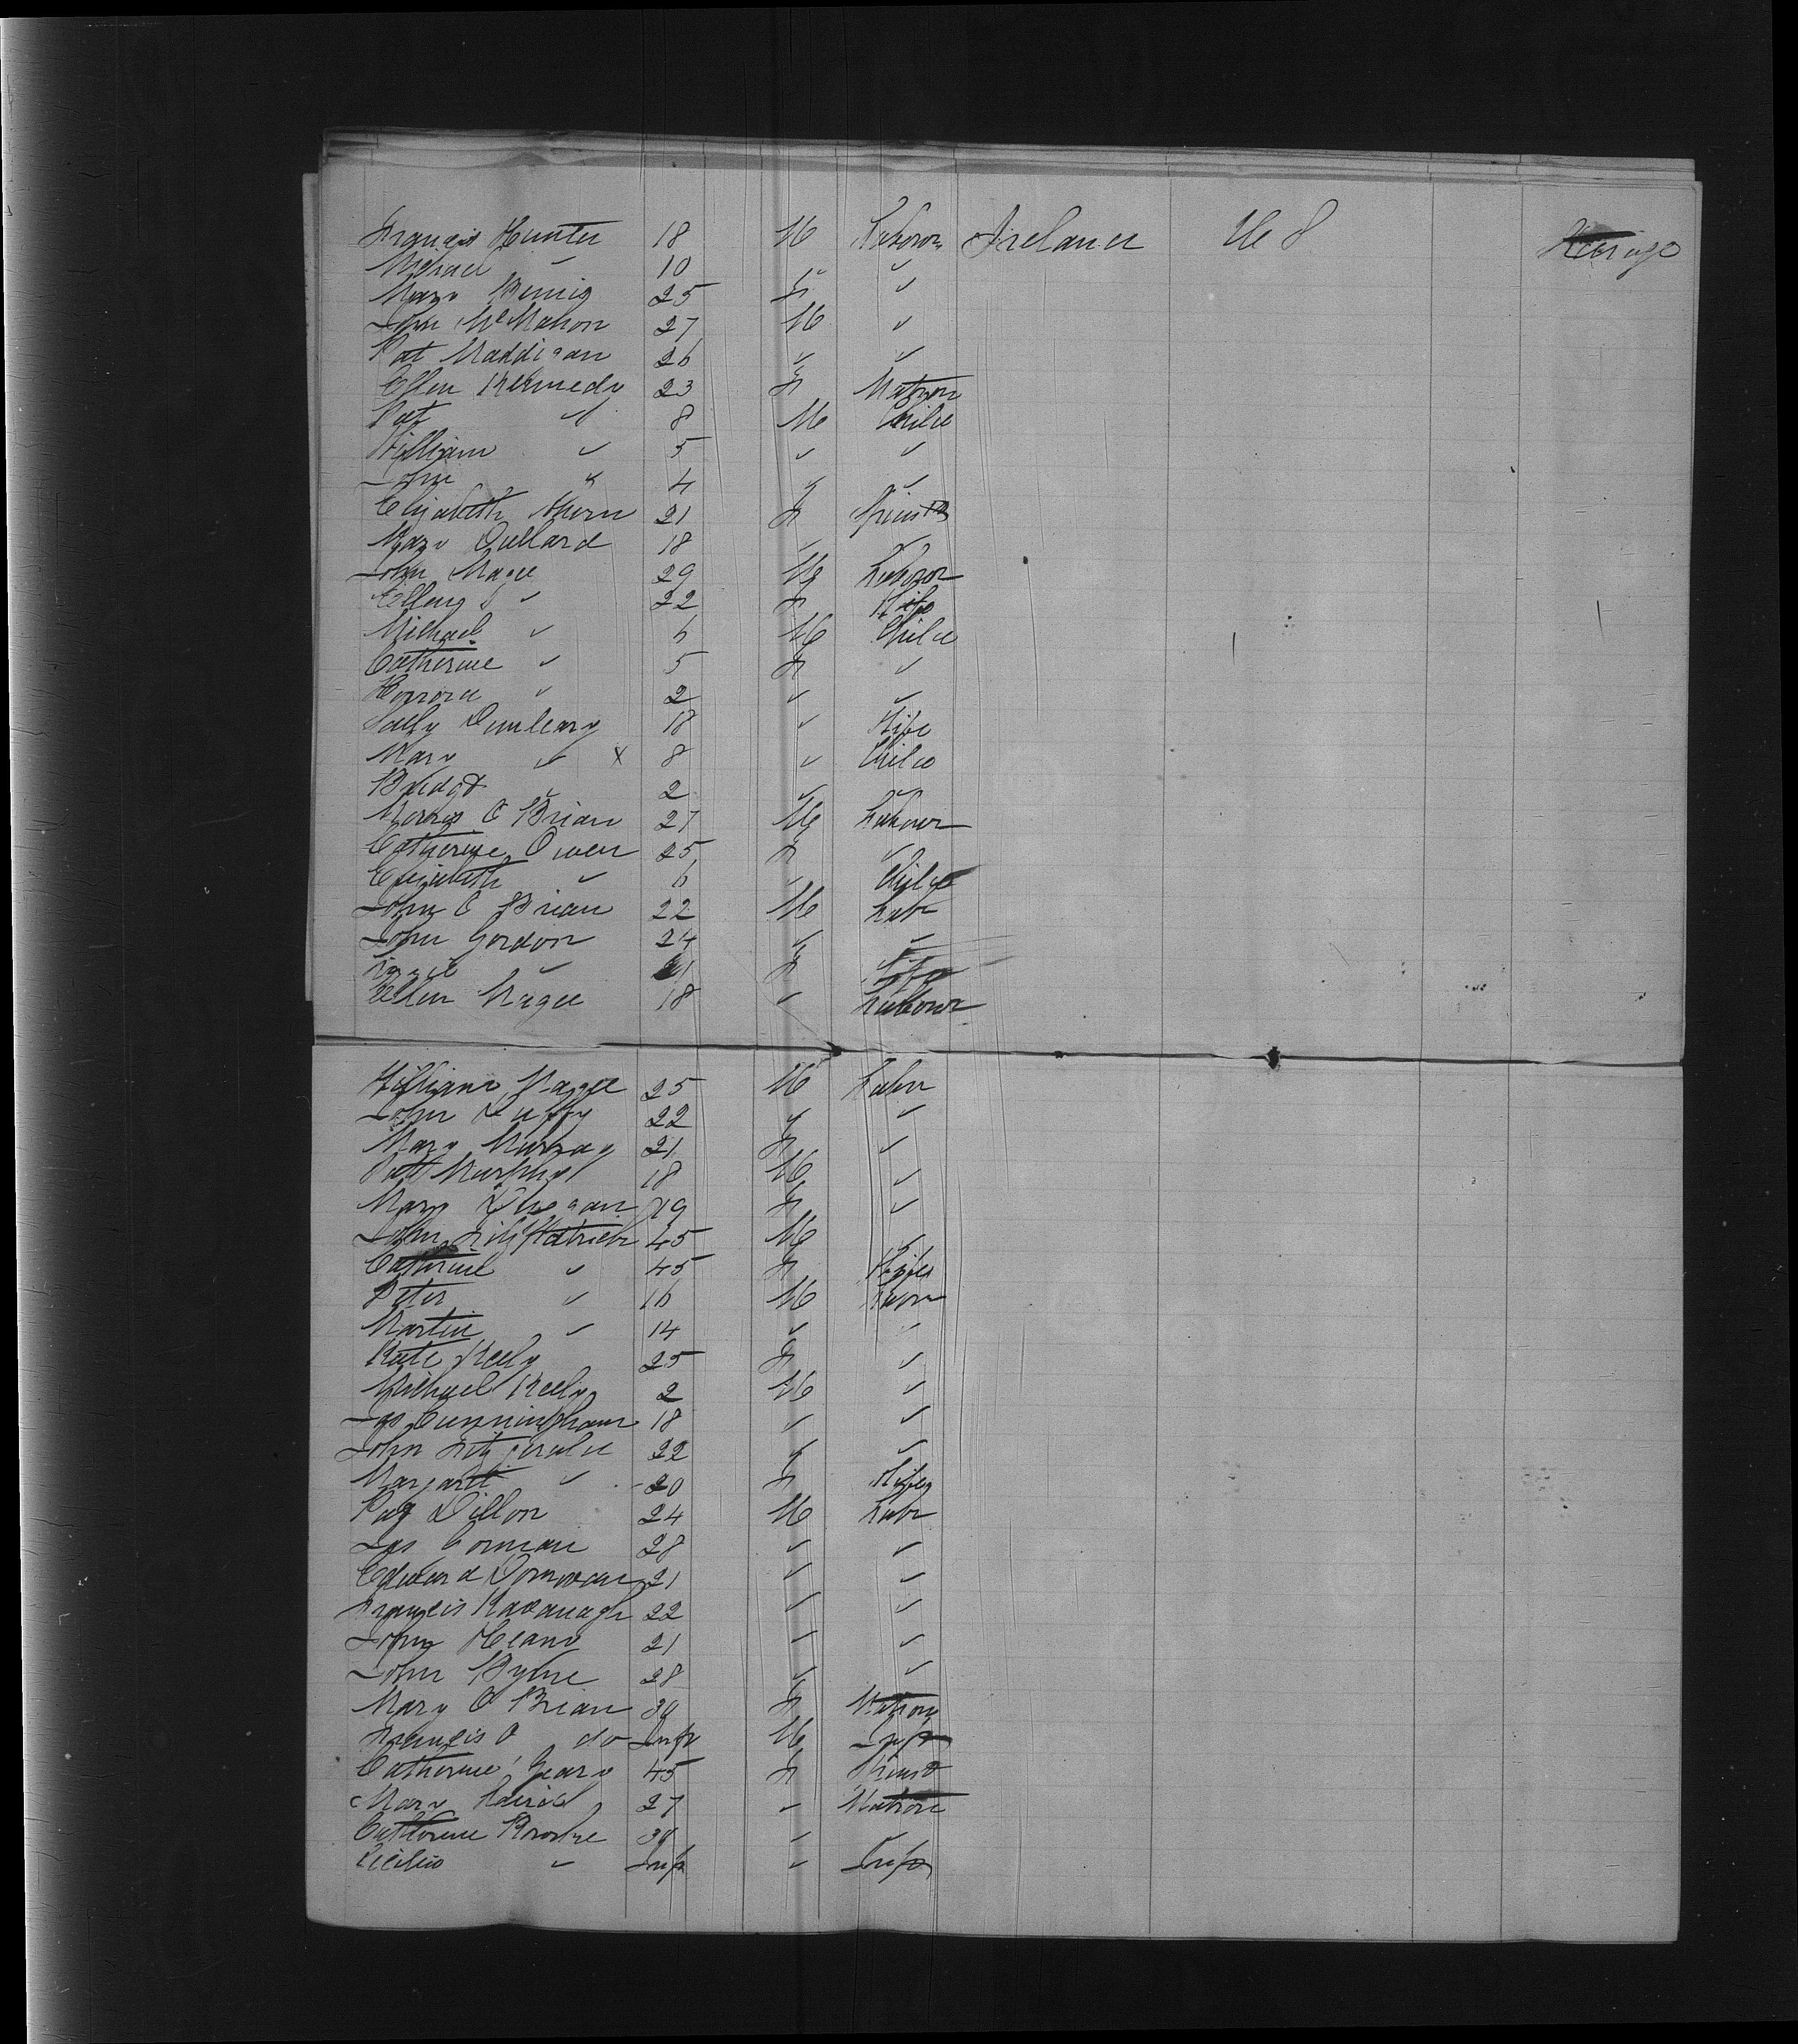 Francis Hunter 18 M Labour Ireland U S Steerage
Michael " 10 " "
Mary 25 F "
John McMahon 27 M "
Pat Maddigan 26 " "
Ellen Kennedy 23 F Matron
Pat " 8 M Child
William " 5 " "
John " 4 " "
Elizabeth Ahern 21 F Spinstr
Mary Cullard 18 " "
John Magee 29 M Labour
Ellen " 22 F Wife
Michael " 6 M Child
Catherine " 5 F "
Honora " 2 " "
Sally Dunleary 18 " Wife
Mary " X 8 " Child
Bridgt " 2 " "
Morris O Brian 27 M Labour
Catherine Owen 25 F "
Elizabeth " 6 " Child
John O Brian 22 M Labr
John Gordon 24 " "
" F Wife
Ellen Magee 18 " Labour
William Magee 25 M Labr
John Duffy 22 " "
Mary Murray 21 F "
Patt Murphy 18 M "
Mary 19 F "
John Fitzpatrick 45 M "
Catherine " 45 F Wife
Peter " 16 M Labr
Martin " 14 " "
Kate Keely 25 F "
Michael Keely 2 M "
Jas Cunningham 18 " "
John Fitzgerald 22 " "
Margaret " 20 F Wife
Pat Dillon 24 M Labr
Jas Corman 28 " "
Edward Donnovan 21 " "
Francis Kavanagh 22 " "
John 21 " "
John Byrne 28 " "
Mary O Brian 30 F Matron
Francis O do Inft M Inft
Catherine Geary 45 F Spinst
Mary 27 " Matron
Catherine 30 " "
Cecilia " Inft " Inft